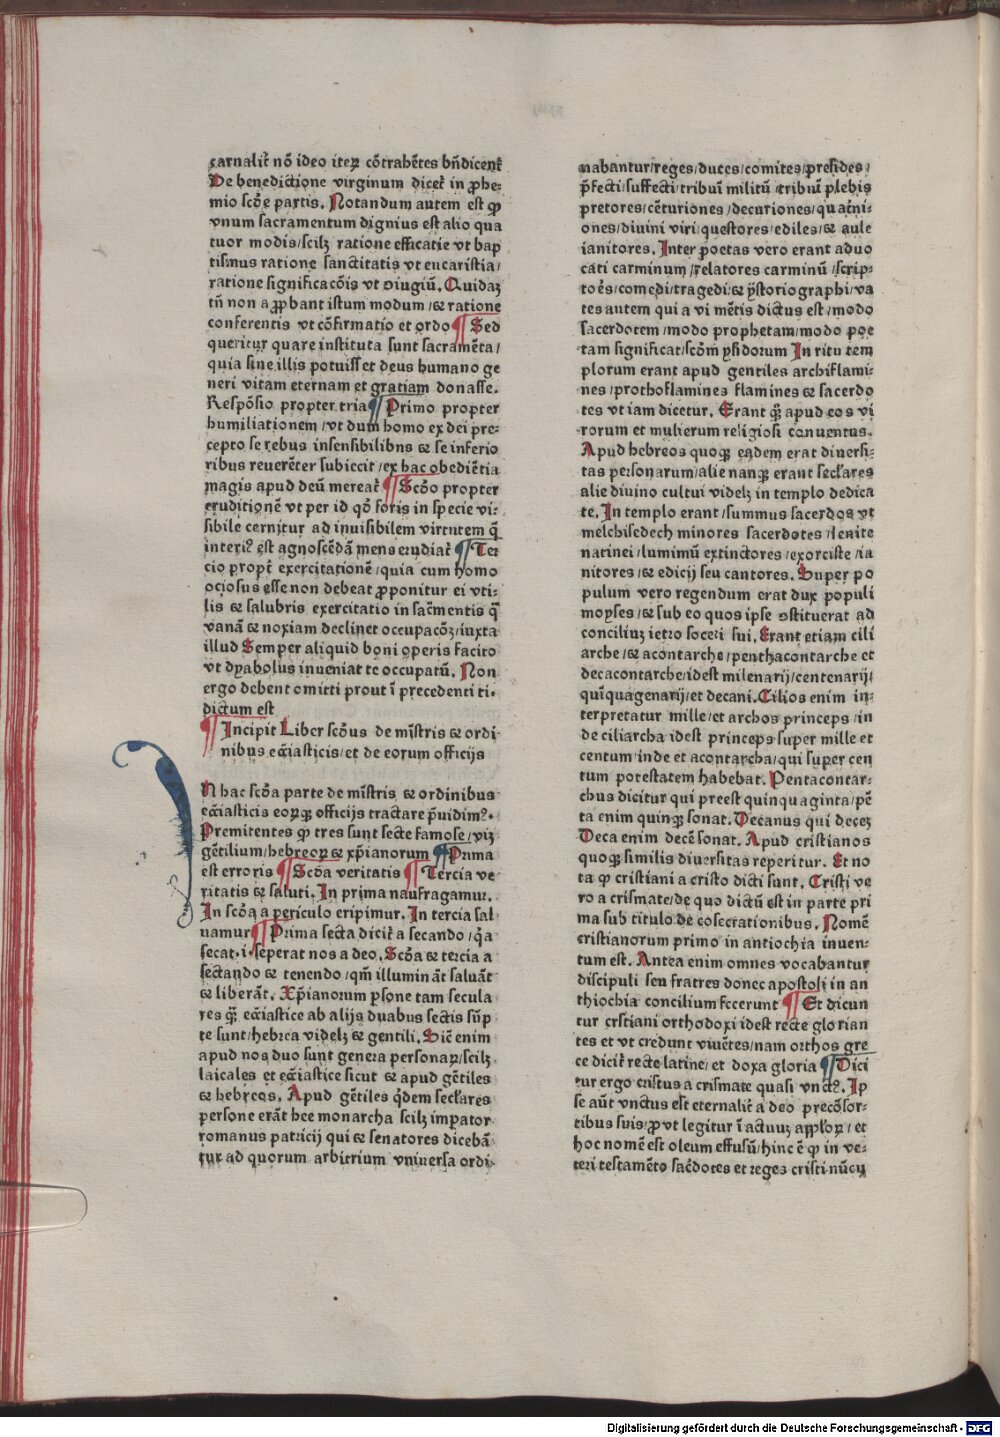 carnalit̉ nō ideo iteꝝ cōtrahētes bn̄dicent̉
De benedictione virginum dicet̉ in ꝓhe⸗
mio scd̄e partis. Notandum autem est ꝙ
vnum sacramentum dignius est alio qua
tuor modis/scilꝫ ratione efficatie vt bap
tismus ratione sanctitatis vt eucaristia/
ratione significacōis vt ↄiugiū. Quidaꝫ
tn̄ non aꝓbant istum modum/⁊ ratione
conferentis vt cōfirmatio et ordo ¶ Sed
queritur quare instituta sunt sacramēta/
quia sine illis potuisset deus humano ge
neri vitam eternam et gratiam donasse.
Respōsio propter tria ¶ Primo propter
humiliationem/vt dum homo ex dei pre⸗
cepto se rebus insensibilibns ⁊ se inferio
ribus reuerēter subiecit/ex hac obediētia
magis apud deū mereat̉ ¶ Scd̄o propter
eruditionē vt per id qd̄ foris in specie vi⸗
sibile cernitur ad inuisibilem virtutem q̄
interiꝰ est agnoscēdā mens erudiat̉ ¶ Ter
cio propt̉ exercitationē/quia cum homo
ociosus esse non debeat ꝓponitur ei vti⸗
lis ⁊ salubris exercitatio in sac̄mentis q̄
vanā ⁊ noxiam declinet occupacōꝫ/iuxta
illud Semper aliquid boni operis facito
vt dyabolus inueniat te occupatū. Non
ergo debent omitti prout ī precedenti ti⸗
dictum est
¶ Incipit Liber scd̄us de mīstris ⁊ ordi
nibus ecc̄iasticis/et de eorum officijs
N hac scd̄a parte de mīstris ⁊ ordinibus
ecc̄iasticis eorꝙ officijs tractare p̄uidimꝰ.
Premitentes ꝙ tres sunt secte famose/viꝫ
gētilium/hebreoꝝ ⁊ xp̄ianorum ¶ Prima
est erroris ¶ Scd̄a veritatis ¶ Tercia ve
ritatis ⁊ saluti. In prima naufragamur.
In scd̄a a periculo eripimur. In tercia sal
uamur ¶ Prima secta dicit̉ a secando/q̉a
secat.i.seperat nos a deo. Scd̄a ⁊ tercia a
sectando ⁊ tenendo/qm̄ illumināt saluāt
⁊ liberāt. Xp̄ianorum ꝑsone tam secula
res q̄ꝫ ecc̄iastice ab alijs duabus sectis sūp
te sunt/hebrea videlꝫ ⁊ gentili. Sic̄ enim
apud nos duo sunt genera personaꝝ/scilꝫ
laicales et ecc̄iastice sicut ⁊ apud gētiles
⁊ hebreos. Apud gētiles q̉dem sec̄lares
persone erāt hee monarcha scilꝫ imꝑator
romanus patricij qui ⁊ senatores dicebā
tur ad quorum arbitrium vniuersa ordi⸗
nabantur/reges/duces/comites/presides/
p̄fecti/suffecti/tribuni militū/tribuni plebis
pretores/cēturiones/decuriones/quat̉ni⸗
ones/diuini viri/questores/ediles/⁊ aule
ianitores. Inter poetas vero erant aduo
cati carminum/relatores carminū/scrip⸗
tor̄s/comedi/tragedi ⁊ ystoriographi/va
tes autem qui a vi mētis dictus est/modo
sacerdotem/modo prophetam/modo poe
tam significat/scd̄m ysidorum In ritu tem
plorum erant apud gentiles archiflami⸗
nes/prothoflamines flamines ⁊ sacerdo
tes vt iam dicetur. Erant q̄ꝫ apud eos vi
rorum et mulierum religiosi conuentus.
Apud hebreos quoqꝫ eadem erat diuersi⸗
tas personarum/alie nanqꝫ erant sec̄lares
alie diuino cultui videlꝫ in templo dedica
te. In templo erant/summus sacerdos vt
melchisedech minores sacerdotes/leuite
natinei/luminū extinctores/exorciste/ia
nitores/⁊ edicij seu cantores. Super po
pulum vero regendum erat dux populi
moyses/⁊ sub eo quos ipse ↄstituerat ad
conciliuꝫ ietro soceri sui. Erant etiam cili
arche/⁊ acontarche/penthacontarche et
decacontarche/idest milenarij/centenarij/
quīquagenarij/et decani. Cilios enim in⸗
terpretatur mille/et archos princeps/in
de ciliarcha idest princeps super mille et
centum/inde et acontarcha/qui super cen
tum potestatem habebat. Pentacontar⸗
chus dicitur qui preest quinquaginta/pē
ta enim quinqꝫ sonat. Decanus qui deceꝫ
Deca enim decē sonat. Apud cristianos
quoqꝫ similis diuersitas reperitur. Et no
ta ꝙ cristiani a cristo dicti sunt. Cristi ve
ro a crismate/de quo dictū est in parte pri
ma sub titulo de cōsecrationibus. Nomē
cristianorum primo in antiochia inuen⸗
tum est. Antea enim omnes vocabantur
discipuli seu fratres donec apostoli in an
thiochia concilium fecerunt ¶ Et dicun
tur crstiani orthodoxi idest recte glorian
tes et vt credunt viuētes/nam orthos gre
ce dicit̉ recte latine/et doxa gloria ¶ Dici
tur ergo cristus a crismate quasi vnctꝰ. Ip
se aūt vnctus est eternalit̉ a deo precōsor⸗
tibus suis/ꝓvt legitur ī actuuꝫ app̄loꝝ/et
hoc nomē est oleum effusū/hinc ē ꝙ in ve⸗
teri testamēto sac̉dotes et reges cristi nūcu
Digitalisierung gefördert durch die Deutsche Forschungsgemeinschaft - DFG